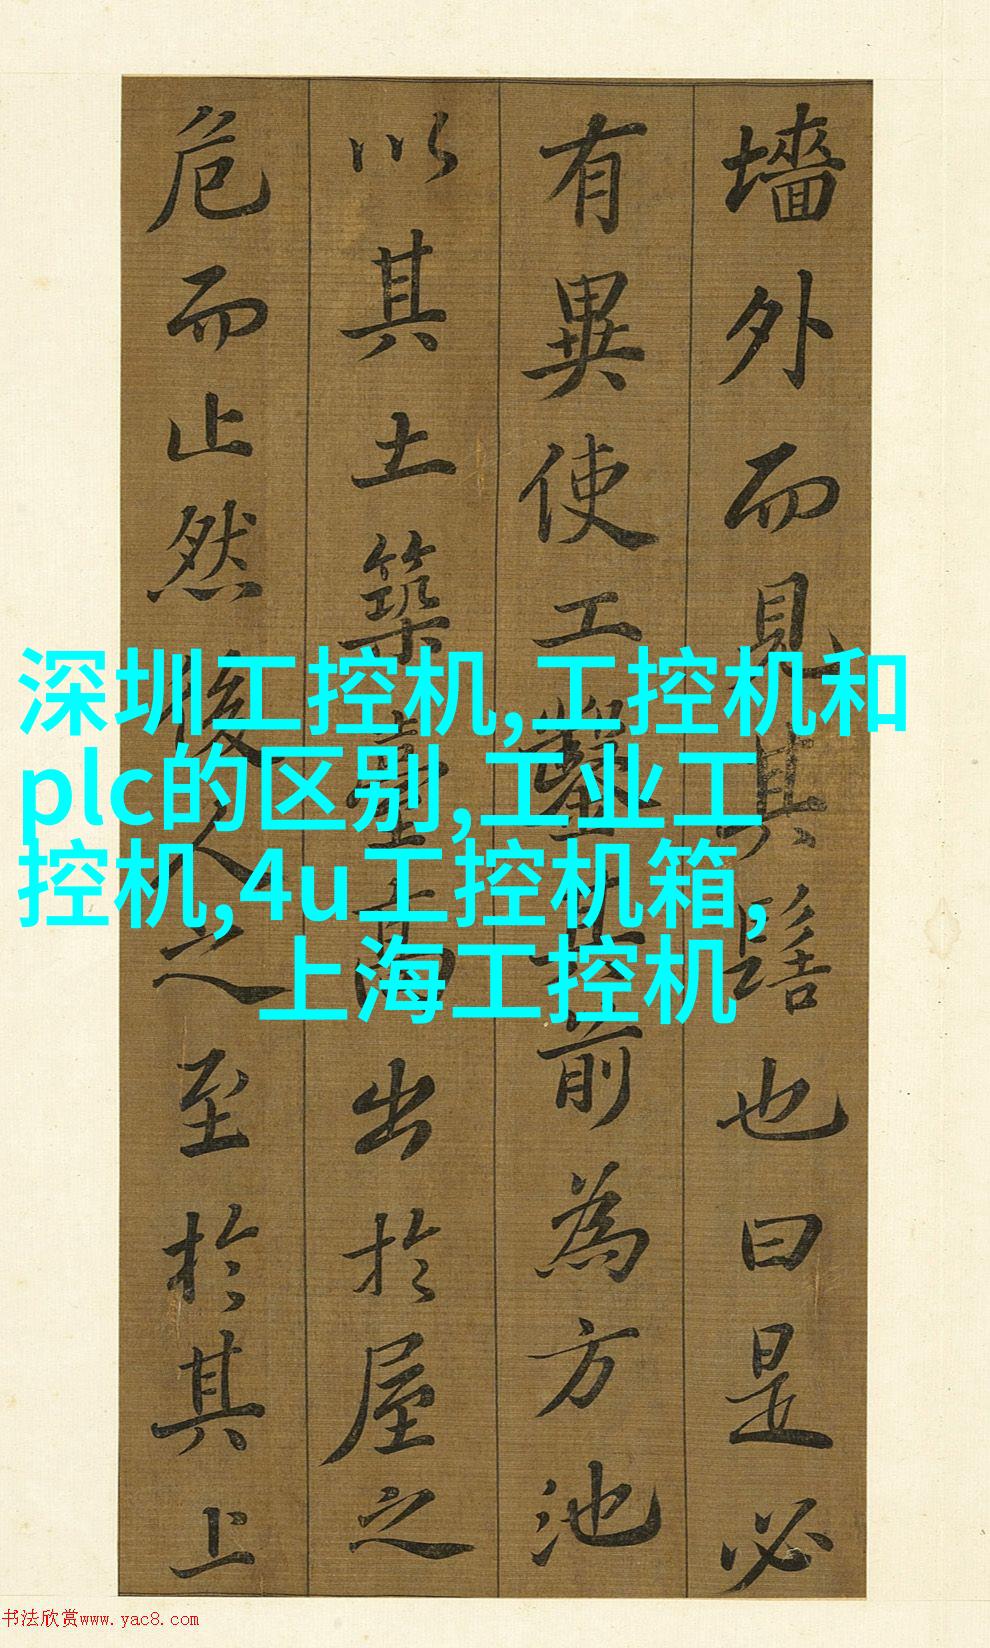 墻外而見其髻也曰是必
有異使工鑿其前為方池
以其土築臺高出於屋之
危而止然後人之至於其上
深圳工控机,工控机和
plc的区别,工业工
控机,4u工控机箱,
上海工控机
书法欣赏www.yac8.com